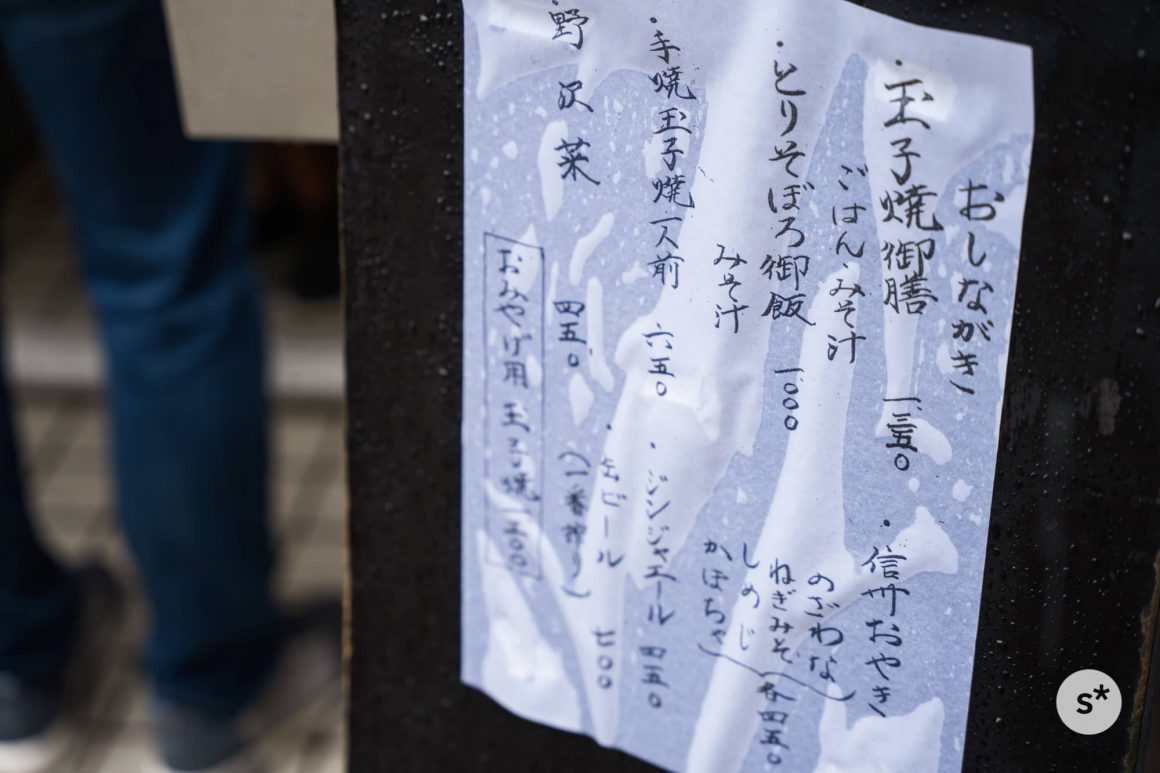 おしながき
・玉子焼御膳 一三五〇
ごはん・みそ汁
・とりそぼろ御飯 一〇〇〇
みそ汁
・手焼玉子焼一人前 六五〇
・野沢菜 四五〇
おみやげ用 玉子焼 一三〇〇
・信州おやき
のざわな
ねぎみそ
しめじ
かぼちゃ
各四五〇
・ジンジャエール 四五〇
・缶ビール 七〇〇
(一番搾り)
s*